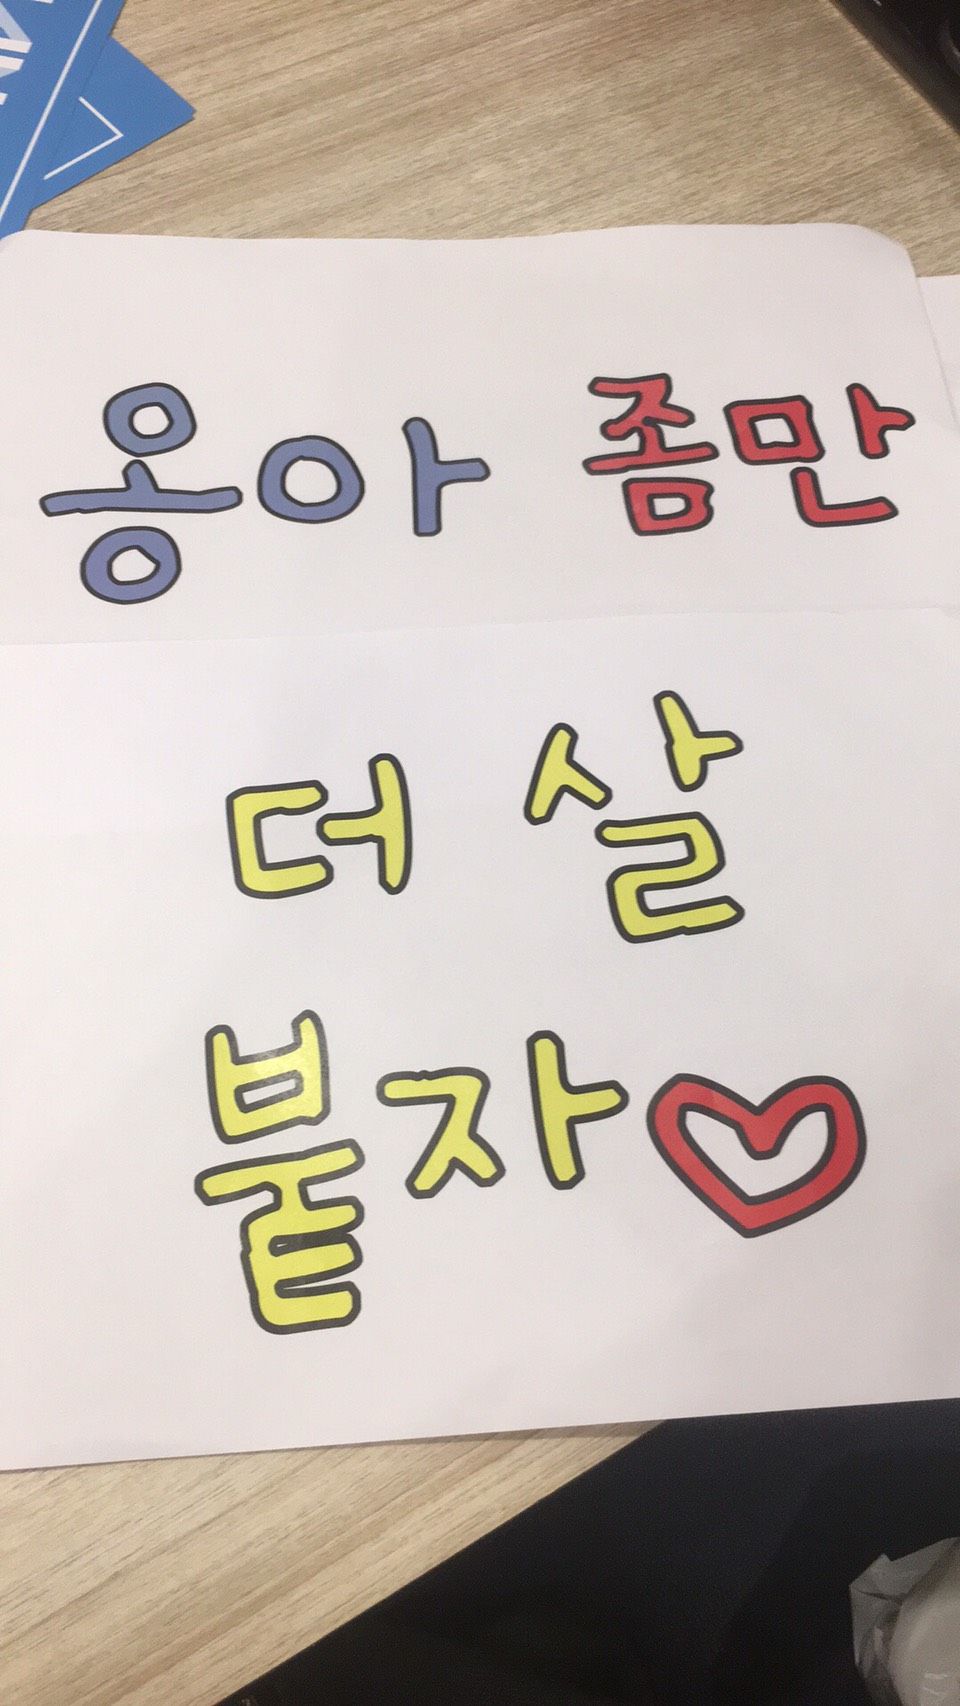 옹아 좀만
더 살
붙자♡